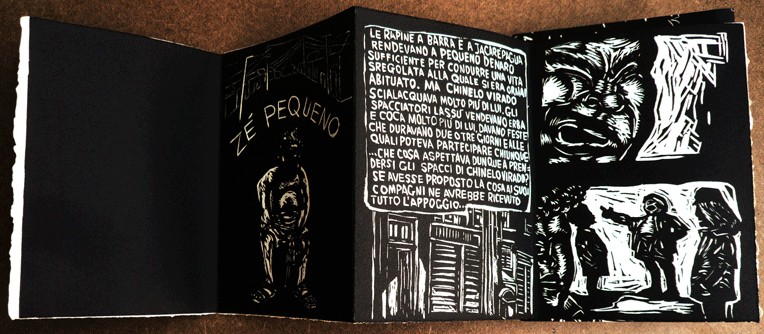 ZÉ PEQUENO
LE RAPINE A BARRA E A JACAREPAGUA
RENDEVANO A PEQUENO DENARO
SUFFICIENTE PER CONDURRE UNA VITA
SREGOLATA ALLA QUALE SI ERA ORMAI
ABITUATO. MA CHINELO VIRADO
SCIALACQUAVA MOLTO PIÙ DI LUI. GLI
SPACCIATORI LASSU' VENDEVANO ERBA
E COCA MOLTO PIÙ DI LUI. DAVANO FESTE
CHE DURAVANO DUE O TRE GIORNI E ALLE
QUALI POTEVA PARTECIPARE CHIUNQUE
...CHE COSA ASPETTAVA DUNQUE A PREN-
DERSI GLI SPACCI DI CHINELO VIRADO?
SE AVESSE PROPOSTO LA COSA AI SUOI
COMPAGNI NE AVREBBE RICEVUTO
TUTTO L'APPOGGIO...